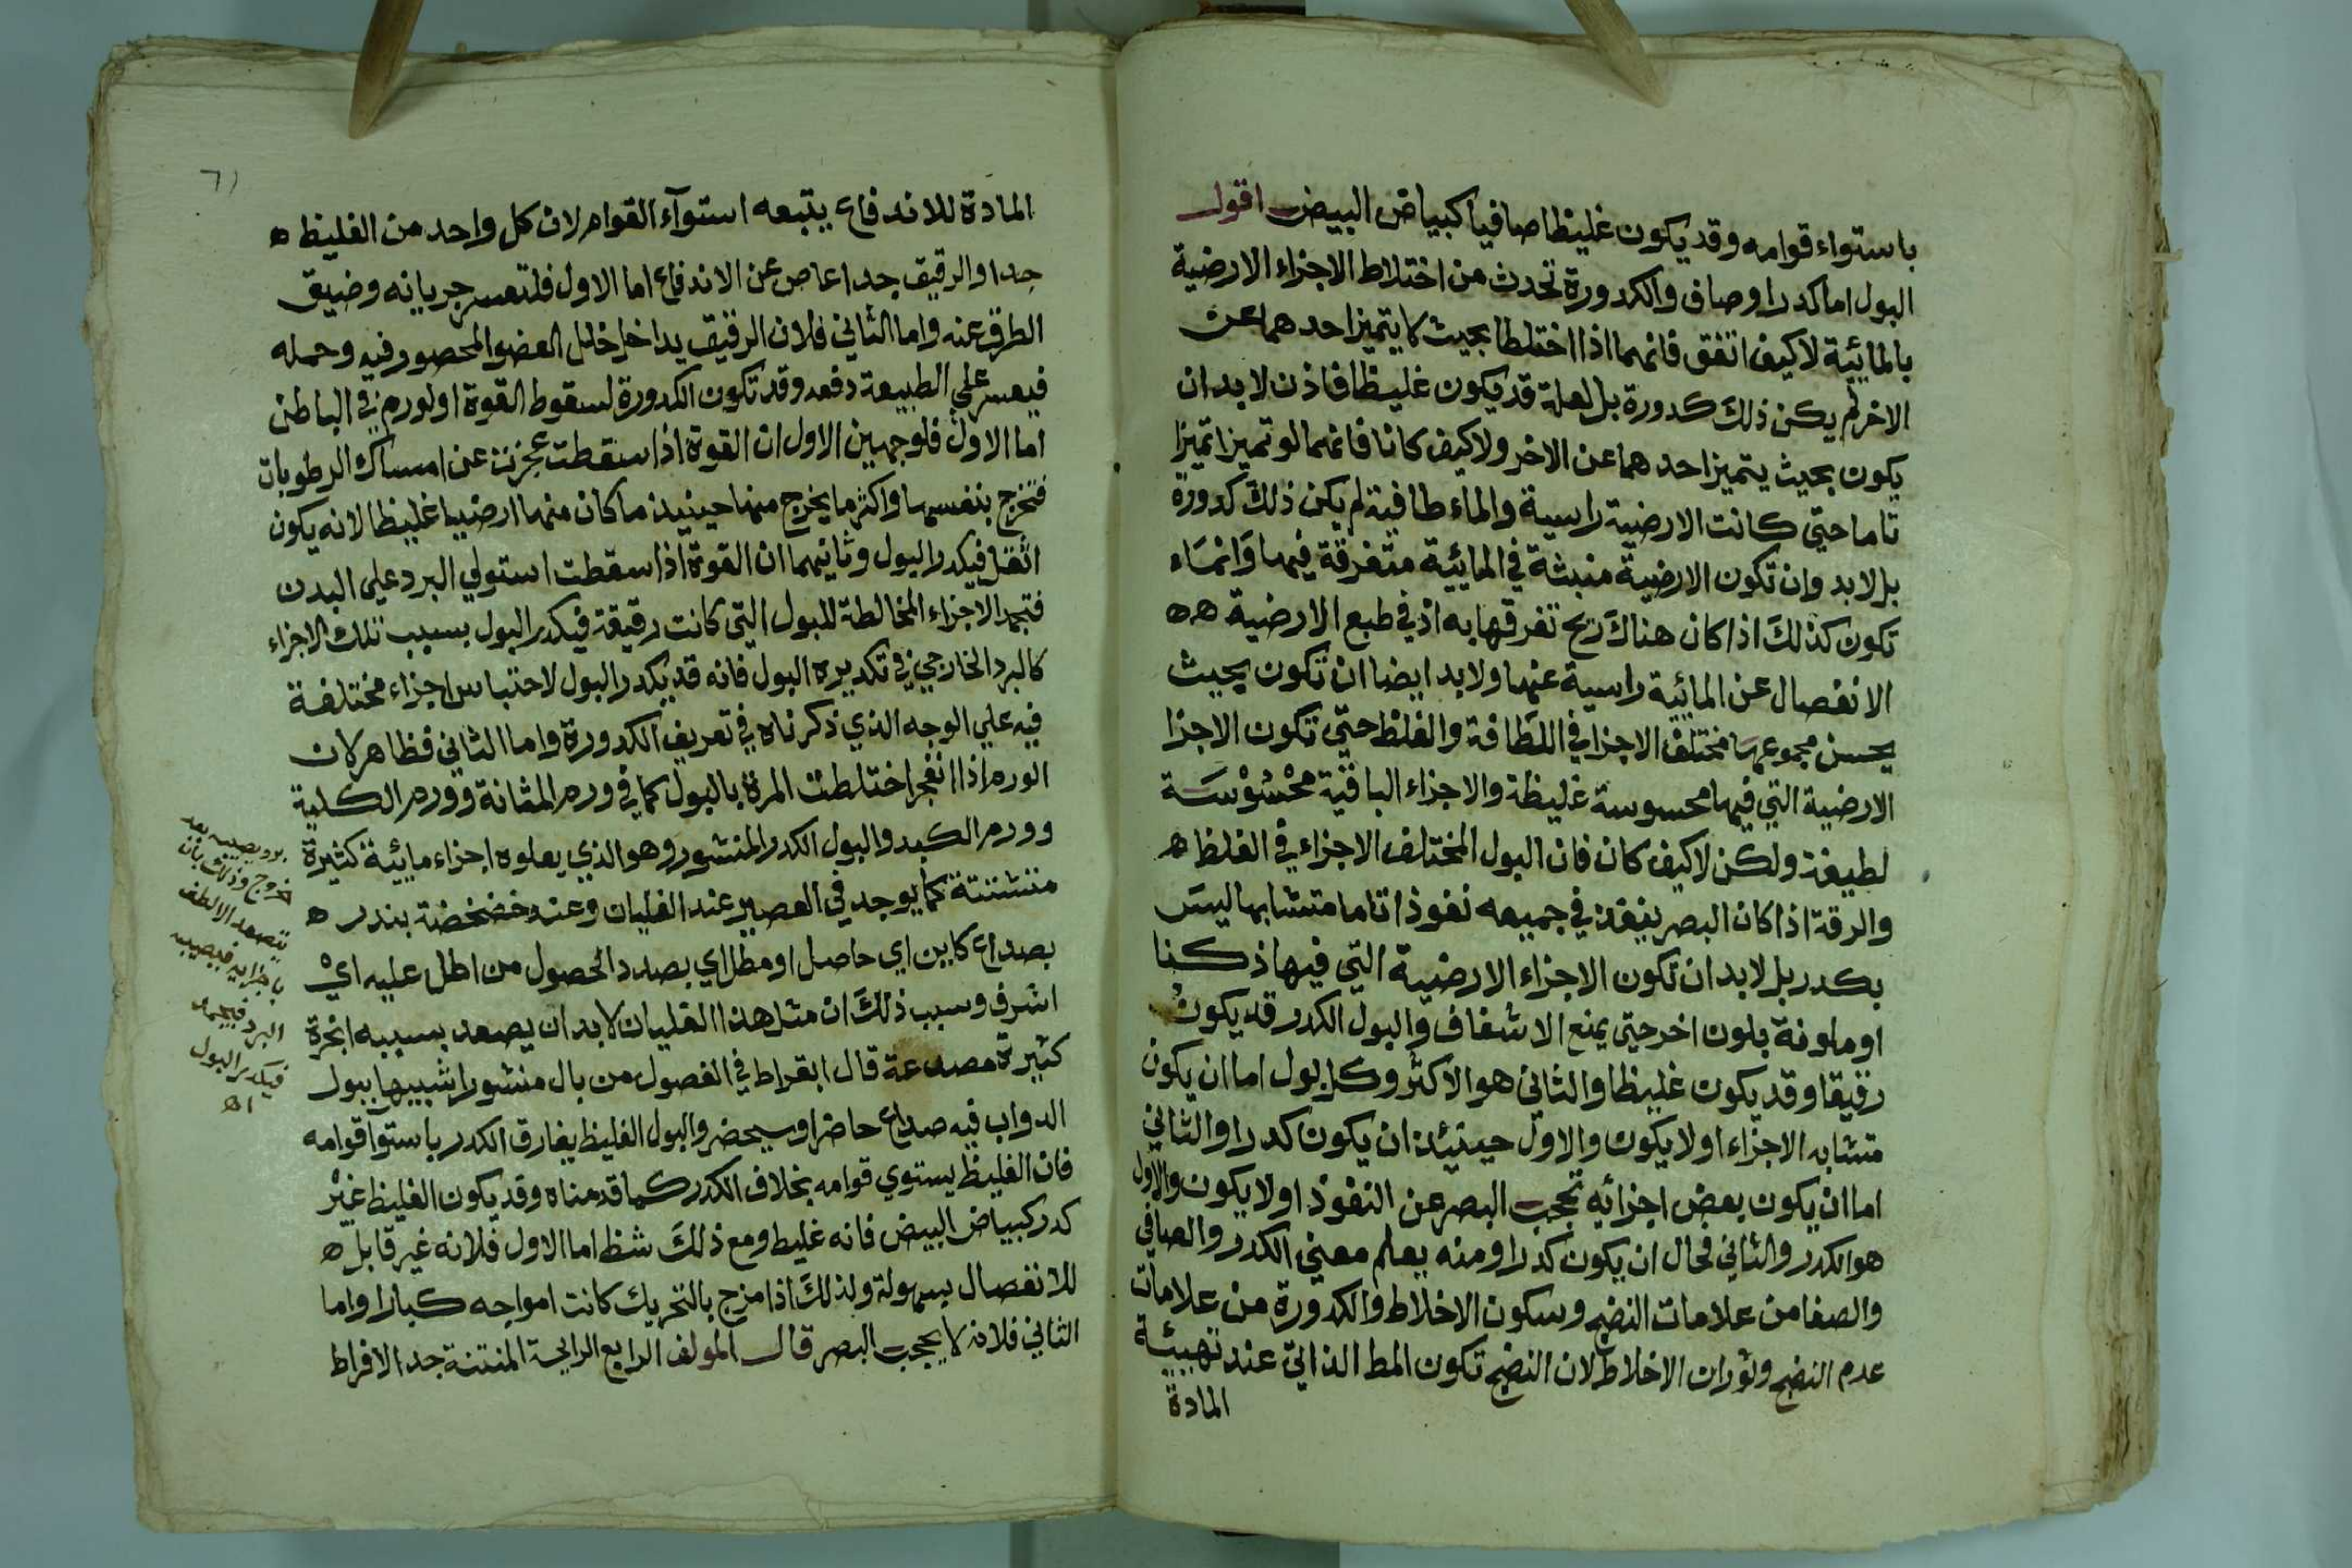 باستواء قوامه وقد يكون غليظا صافيا كبياض البيض اقول
البول اما كدر او صاف والكدورة تحدث من اختلاط الاجزاء الارضية
بالمائية لا كيف اتفق فانهما اذا اختلطا بحيث لا يتميز احدهما عن
الاخر لم يكن ذلك كدورة بل لعلة قد يكون غليظا فاذن لا بد ان
يكون بحيث يتميز احدهما عن الاخر ولا كيف كانا فانهما لو تميزا تميزا
تاما حتي كانت الارضية راسية والماء طافية لم يكن ذلك كدورة
بل لا بد وان تكون الارضية منبثة في المائية متفرقة فيها وانماء
تكون كذلك اذا كان هناك ريح تفرقها به اذ في طبع الارضية ه ه
الانفصال عن المائية راسية عنها ولا بد ايضا ان تكون بحيث
يحسن مجموعها مختلف الاجزا في اللطافة والغلظ حتي تكون الاجزا
الارضية التي فيها محسوسة غليظة والاجزاء الباقية محسوسة
لطيفة ولكن لا كيف كان فان البول المختلف الاجزاء في الغلظ ه
والرقة اذا كان البصر ينفذ في جميعه نفوذا تاما متشابها ليس
بكدر بل لا بد ان تكون الاجزاء الارضية التي فيها ذ كنا
او ملونة بلون اخر حتي يمنع الاشفاف والبول الكدر قد يكون
رقيقا وقد يكون غليظا والثاني هو الاكثر وكل بول اما ان يكون
متشابه الاجزاء او لا يكون والاول حينئذ ان يكون كدرا والثاني
اما ان يكون بعض اجزائه تحجب البصر عن النفوذ او لا يكون والاول
هو الكدر والثاني محال ان يكون كدرا ومنه يعلم معني الكدر والصافي
والصفا من علامات النضج وسكون الاخلاط والكدورة من علامات
عدم النضج وثوران الاخلاط لان النضج تكون المط الذاتي عند تهيئة
المادة
٦١
المادة للاندفاع يتبعه استوآء القوام لان كل واحد من الغليظ ه
جدا والرقيق جدا عاص عن الاندفاع اما الاول فلتعسر جريانه وضيق
الطرق عنه واما الثاني فلان الرقيق يداخل خلل العضو المحصور فيه وحمله
فيعسر علي الطبيعة دفعه وقد تكون الكدورة لسقوط القوة او لورم في الباطن
اما الاول فلوجهين الاول ان القوة اذا سقطت عجزت عن امساك الرطوبات
فتخرج بنفسها واكثر ما يخرج منها حينيذ ما كان منها ارضيا غليظا لانه يكون
اثقل فيكدر البول وثانيهما ان القوة اذا سقطت استولي البرد علي البدن
فتجمد الاجزاء المخالطة للبول التي كانت رقيقة فيكدر البول بسبب تلك الاجزاء
كالبرد الخارجي في تكديره البول فانه قد يكدر البول لاحتباس اجزاء مختلفة
فيه علي الوجه الذي ذكرناه في تعريف الكدورة واما الثاني فظاهر لان
الورم اذا انفجر اختلطت المرة بالبول كما في ورم المثانة وورم الكلية
وورم الكبد والبول الكدر المنشور وهو الذي يعلوه اجزاء مايية كثيرة
متشتتة كما يوجد في العصير عند الغليان وعند خضخضة بندر ه
بصداع كاين اي حاصل او مظل اي بصدد الحصول من اظل عليه اي
اشرف وسبب ذلك ان مثل هذا الغليان لا بد ان يصعد بسببه ابخرة
كثيرة مصدعة قال ابقراط في الفصول من بال منشورا شبيها ببول
الدواب فيه صداع حاضر او سيحضر والبول الغليظ يفارق الكدر باستوا قوامه
فان الغليظ يستوي قوامه بخلاف الكدر كما قدمناه وقد يكون الغليظ غير
كدر كبياض البيض فانه غليظ ومع ذلك شظ اما الاول فلانه غير قابل ه
للانفصال بسهولة ولذلك اذا مزج بالتحريك كانت امواجه كبارا واما
الثاني فلانه لا يحجب البصر قال المولف الرابع الرايحة المنتنة جدا الافراط
برد يصيبه بعد
خروج وذلك بان
يتصعد الالطف
باجزايه فيصيبه
البرد فيجمد
فيكدر البول
اه